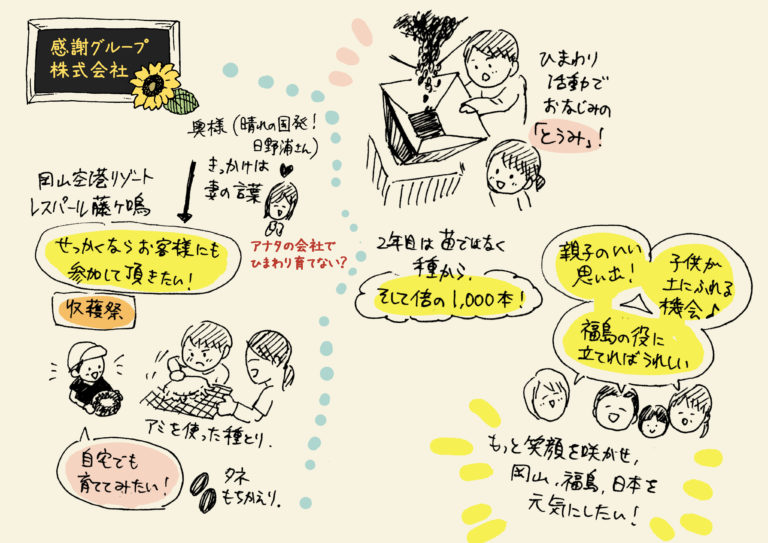 感謝グループ
株式会社
奥様(晴れの国発!
日野浦さん)
きっかけは
妻の言葉
アナタの会社で
ひまわり育てない?
岡山空港リゾート
レスパール藤ヶ鳴
せっかくならお客様にも
参加して頂きたい!
収穫祭
アミを使った種とり.
自宅でも
育ててみたい!
タネ
もちかえり.
ひまわり
活動で
おなじみの
「とうみ」!
2年目は苗ではなく
種から.
そして倍の1,000本!
親子のいい
思い出!
子供が
土にふれる
機会♪
福島の役に
立てればうれしい
もっと笑顔を咲かせ,
岡山,福島,日本を
元気にしたい!